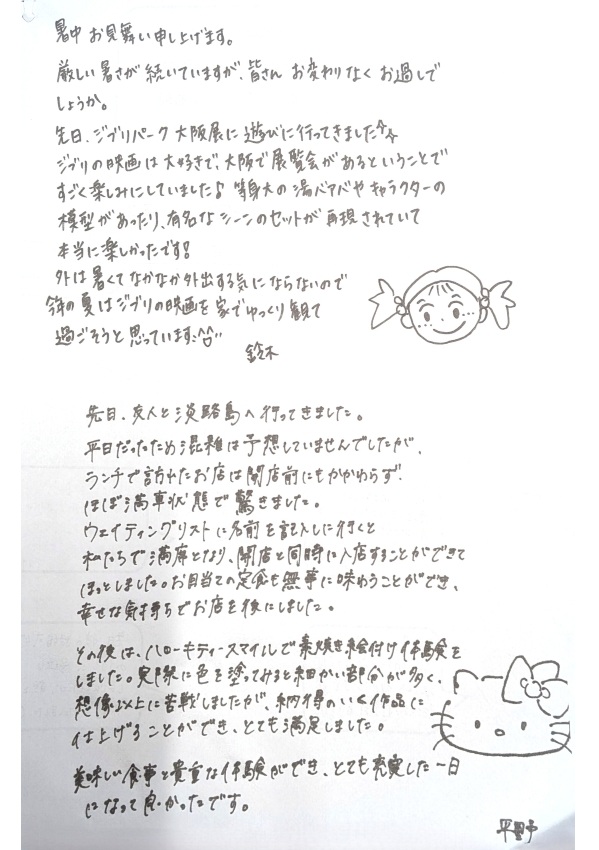 暑中お見舞い申し上げます。
厳しい暑さが続いていますが、皆さんお変わりなくお過しで
しょうか。
先日、ジブリパーク大阪展に遊びに行ってきました
ジブリの映画は大好きで、大阪で展覧会があるということで
すごく楽しみにしていました♪ 等身大の湯バアバやキャラクターの
模型があったり、有名なシーンのセットが再現されていて
本当に楽しかったです!
外は暑くてなかなか外出する気にならないので
今年の夏はジブリの映画を家でゆっくり観て
過ごそうと思っています。^^
鈴木
先日、友人と淡路島へ行ってきました。
平日だったため混雑は予想していませんでしたが、
ランチで訪れたお店は開店前にもかかわらず、
ほぼ満車状態で驚きました。
ウェイティングリストに名前を記入しに行くと
私たちで満席となり、開店と同時に入店することができて
ほっとしました。お目当ての定食も無事に味わうことができ、
幸せな気持ちでお店を後にしました。
その後は、ハローキティースマイルで素焼き絵付け体験を
しました。実際に色を塗ってみると細かい部分が多く、
想像以上に苦戦しましたが、納得のいく作品に
仕上げることができ、とても満足しました。
美味しい食事と貴重な体験ができ、とても充実した一日
になって良かったです。
平野